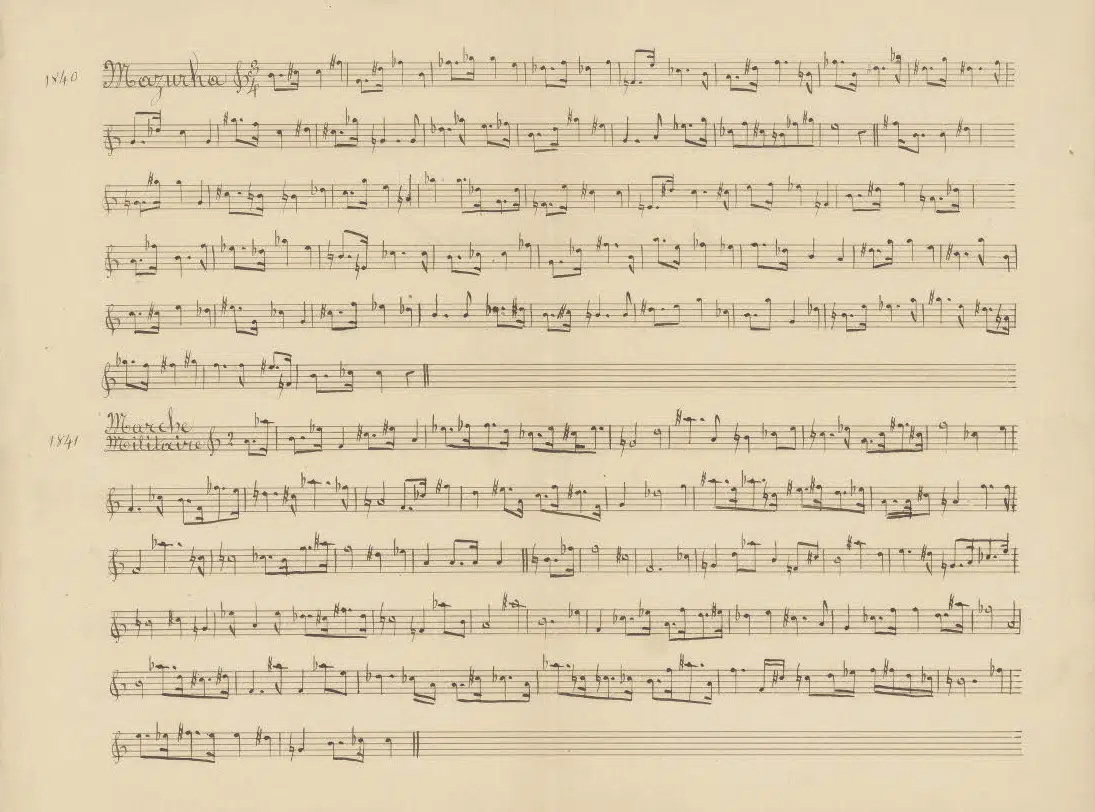 1840
Mazurka 3
4
1841
Marche
Militaire 2